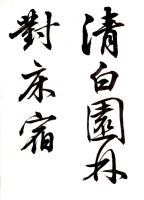 清白園林
對床宿